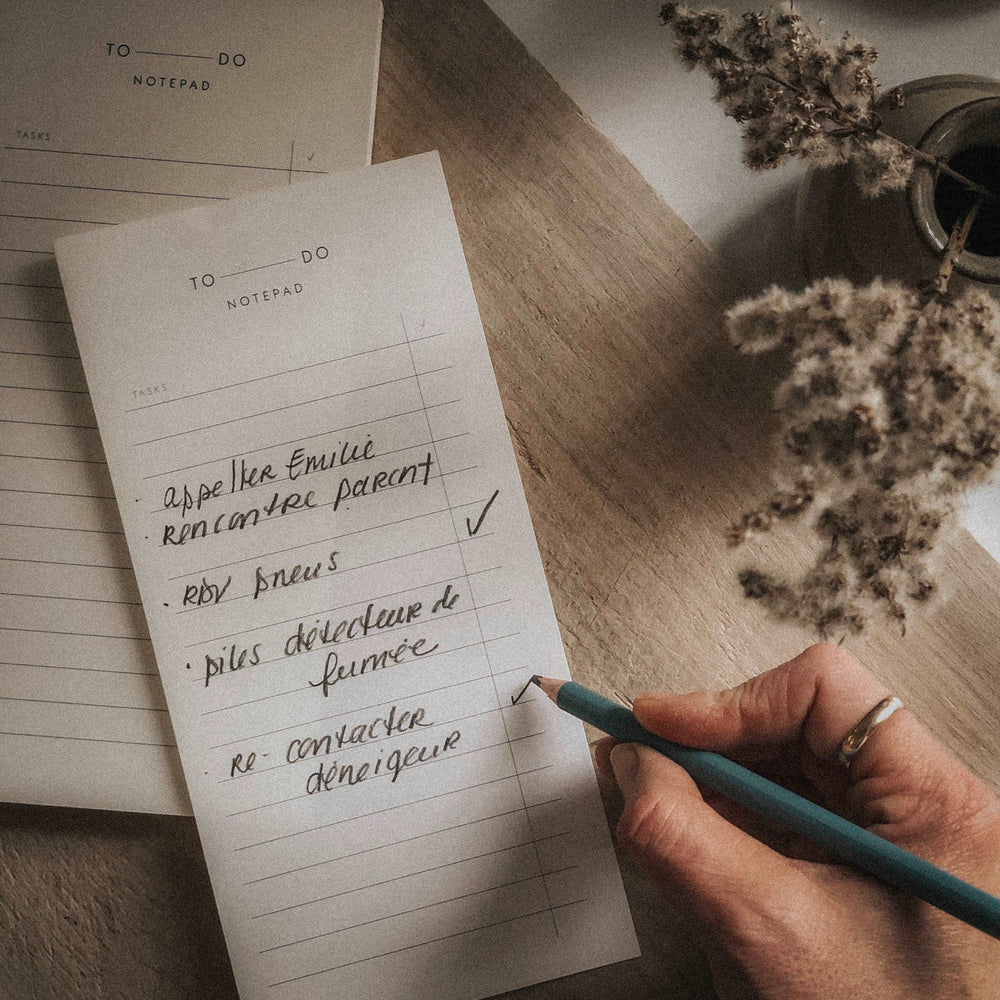 TO DO
NOTEPAD
TASKS
TO DO
NOTEPAD
TASKS
· appeller Emilie
· rencontre parent
· RDV pneus
· piles détecteur de
fumée
· re-contacter
déneigeur